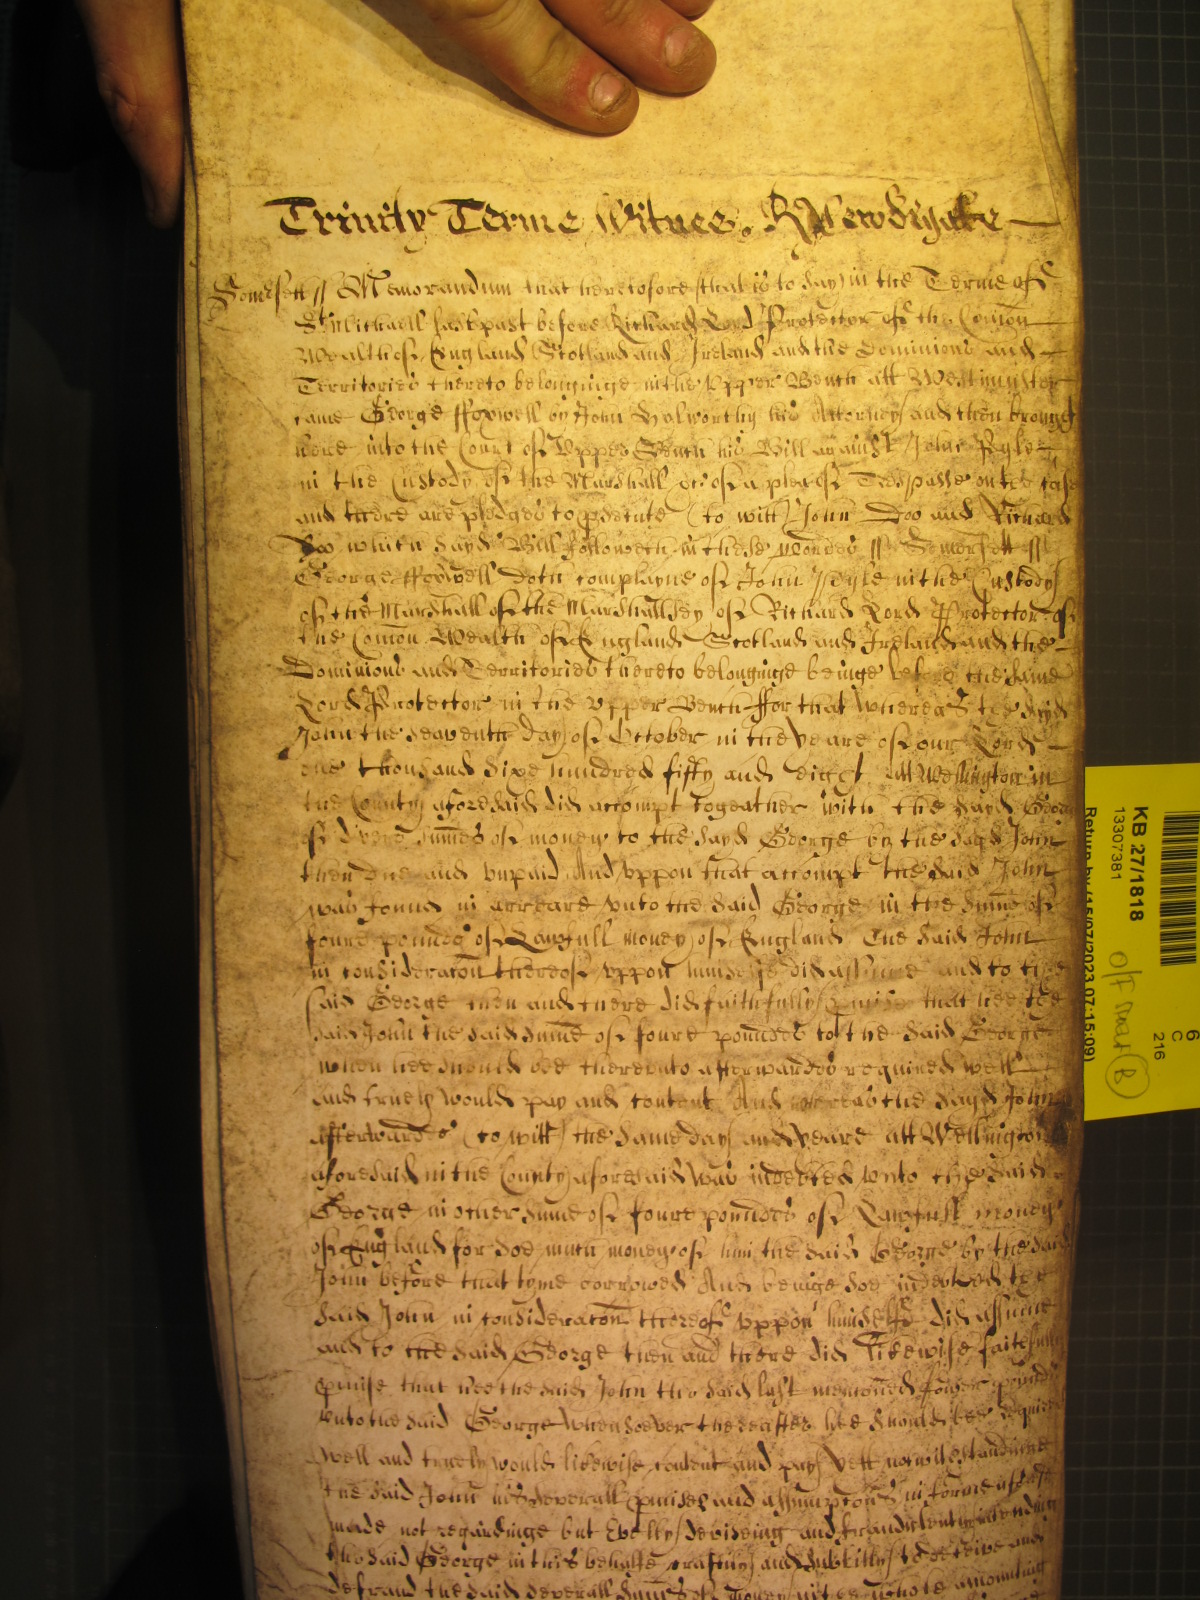 Trinity Terme Witnes. R Newdigate
Somersett ss Memorandum that heretofore (that is to say) in the Terme of
St Michaell last past before Richard Lord Protector of the Comon
Wealth of England Scotland and Ireland and the Dominions and
Territories thereto belonginge in the Upper Bench att Westminster
came George ffoxwell by John Halworthy his Attorney and then brought
here into the Court of Upper Bench his Bill against John
in the Custody of the Marshall &c of a plea of Trespasse on the case
and there are pledges to psecute (to witt) John Doo and Richard
Roo which sayd Bill followeth in these wordes ss Somersett ss
George ffoxwell doth complayne of John in the Custody
of the Marshall of the Marshallsey of Richard Lord Protector of
the Comon Wealth of England Scotland and Ireland and the
Dominions and Territories thereto belonginge beinge before the same
Lord Protector in the Upper Bench ffor that whereas the sayd
John the seaventh day of October in the yeare of our Lord
one thousand sixe hundred fifty and eight att Wellington in
the County aforesaid did accompt togeather with the sayd George
of divers sumes of money to the sayd George by the sayd John
then due and unpaid And uppon that accompt the said John
was found in arreare unto the said George in the sume of
foure poundes of Lawfull money of England The said John
in consideracon thereof uppon himselfe did assume and to the
said George then and there did faithfully pmise that hee the
said John the said sume of foure poundes to the said George
when hee should bee thereunto afterwardes required well
and truely would pay and content And whereas the sayd John
afterwardes (to witt) the same day and yeare att Wellington
aforesaid in the County aforesaid was indebted unto the said
George in other sume of foure poundes of Lawfull money
of England for soe much money of him the said George by the said
John before that tyme borrowed And beinge soe indebted the
said John in consideracon thereof uppon himselfe did assume
and to the said George then and there did likewise faithfully
pmise that hee the said John the said last menconed fower poundes
unto the said George whensoever thereafter hee should bee required
well and truely would likewise content and pay Yett notwithstandinge
the said John his severall pmises and assumpcons in forme aforesaid
made not regardinge but
the said George in this behalfe craftily and subtilly to deceive and
defraud the said severall sumes of money in the whole amounting
KB 27/1818
13307381
Return by (15/07/2023 07:15:09)
6
C
216